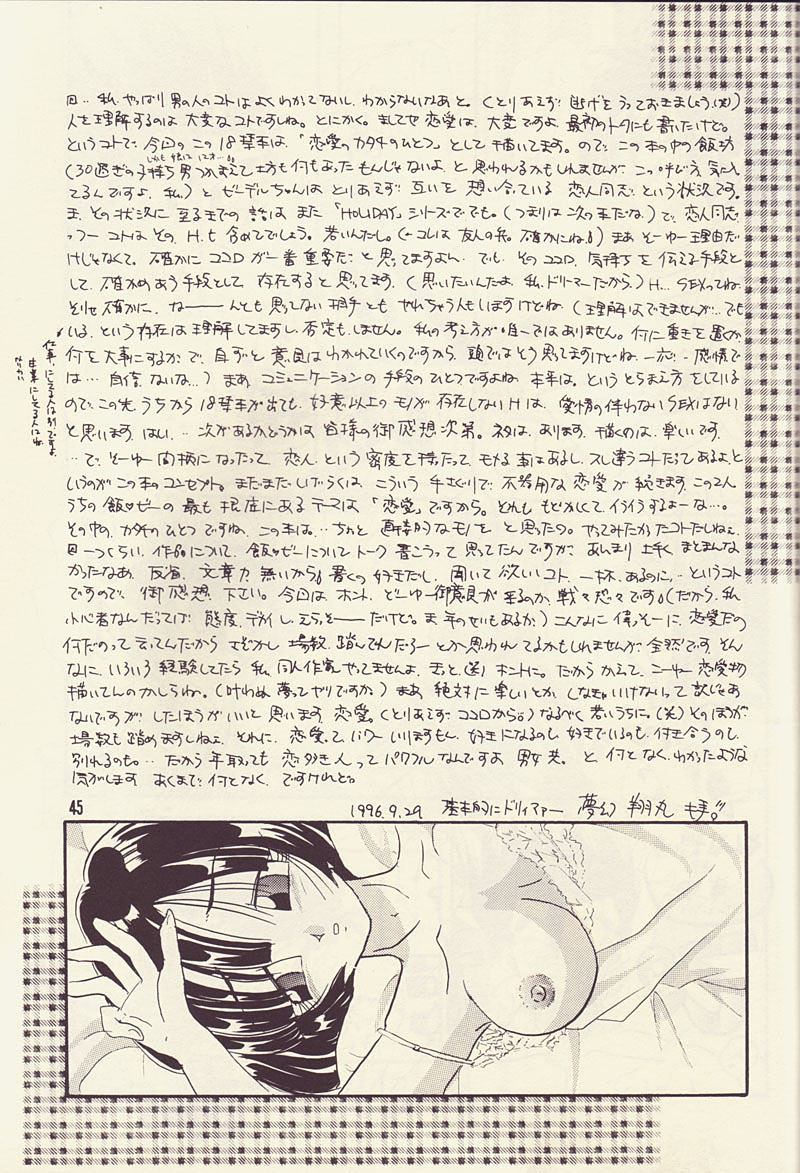 回‥私、やっぱり男の人のコトはよくわかってないし、わからないなあと。(とりあえず逃げをうっておきましょう。(笑))
人を理解するのは大変なコトですね。とにかく。ましてや恋愛は、大変ですよ、最初のトークにも書いたけど。
というコトで、今回のこの18禁本は、「恋愛のカタチのひとつ」として描いてます。ので、この本の中の飯坊
(30過ぎの子持ち男つかまえて坊も何もあったもんじゃないよ、と思われるかもしれませんが、この呼び方、気に入っ
てるんですよ、私。)とビーデルちゃんはとりあえず互いを想い合っている恋人同志、という状況です。
ま、その状況に至るまでの話はまた「HOLIDAY」シリーズででも。(つまりは次の本だな。)で、恋人同志、
っつーコトはその、H.も含めてでしょう。若いんだし。(←コレは友人の弁。確かにね。)まあそーゆー理由だ
けじゃなくて。確かにココロが一番重要だと思ってますよ。でも、そのココロ、気持ちを伝える手段と
して、確かめあう手段として存在すると思ってます。(思いたいんだよ、私、ドリーマーだから。)H…SEXってね。
そりゃ確かに、な――んとも思ってない相手ともやれちゃう人もいますけどね。(理解はできませんが…でも
いる、という存在は理解してますし、否定もしません。私の考え方が唯一ではありません。何に重きを置くか、
何を大事にするか、で、自ずと意見はわかれていくのですから、頭ではそう思ってますけどね、一応、感情で
は…自信、ないな…)まあ、コミュニケーションの手段のひとつですよね。本来は。というとらえ方をしている
ので、この先、うちから18禁本が出ても、好意以上のモノが存在しないHは、愛情の伴わないSEXはない
と思います、はい。…次があるかどうかは皆様の御感想次第。ネタは、あります。描くのは、楽しいです。
…で、そーゆー間柄になったって恋人、という密度を持ったって、モメる事はあるし、スレ違うコトだってあるよ、と
いうのがこの本のコンセプト。まだまだしばらくは、こういう手さぐりで、不器用な恋愛が続きます、この2人
うちの飯♡ビーの最も根底にあるテーマは「恋愛」ですから。とれもどかしくて、イライラするよーな…。
その中の、カタチのひとつですね、この本は。‥ちょっと実験的なモノを、と思ったの。やってみたかったコトだしねぇ。
日一つくらい、作品について、飯♡ビーについてトーク書こうって思ってたんですが、あんまり上手くまとまんな
かったなあ、反省。文章力無いから。書くの好きだし、聞いて欲しいコト、一杯、あるのに‥というコト
ですので、御感想、下さい。今回は、ホント、どーゆー御意見が来るのか、戦々恐々です。(だから、私
小心者なんだってば。態度、デカイし、えらそーだけど。ま、年のせいもあるか。)こんなに偉そーに、恋愛だの
何だのって言ってんだから、さぞかし場数、踏んでんだろーとか思われてるかもしれませんが、全然です。そん
なに、いろいろ経験してたら、私、同人作家、やってませんよ、きっと。(笑)ホントに。だからかえって、こーゆー恋愛物
描いてんのかしらね。(叶わぬ夢ってヤツですか。)まあ、絶対に楽しいとか、しなきゃいけないって訳じゃあ
ないですが、したほうがいいと思います、恋愛。(とりあえず、ココロから。)なるべく若いうちに。(笑)そのほうが、
場数も踏めますしねぇ。それに、恋愛って、パワーいりますもん。好きになるのも、好きでいるのも、付き合うのも、
別れるのも。‥だから年取っても恋多き人ってパワフルなんですよ、男女共。と、何となく、わかったような
気がします。あくまで、何となく、ですけれど。
仕事にしてる人は別ですよ。
45
1996.9.29 基本的にドリィマァー 夢幻 翔丸 もも。!!